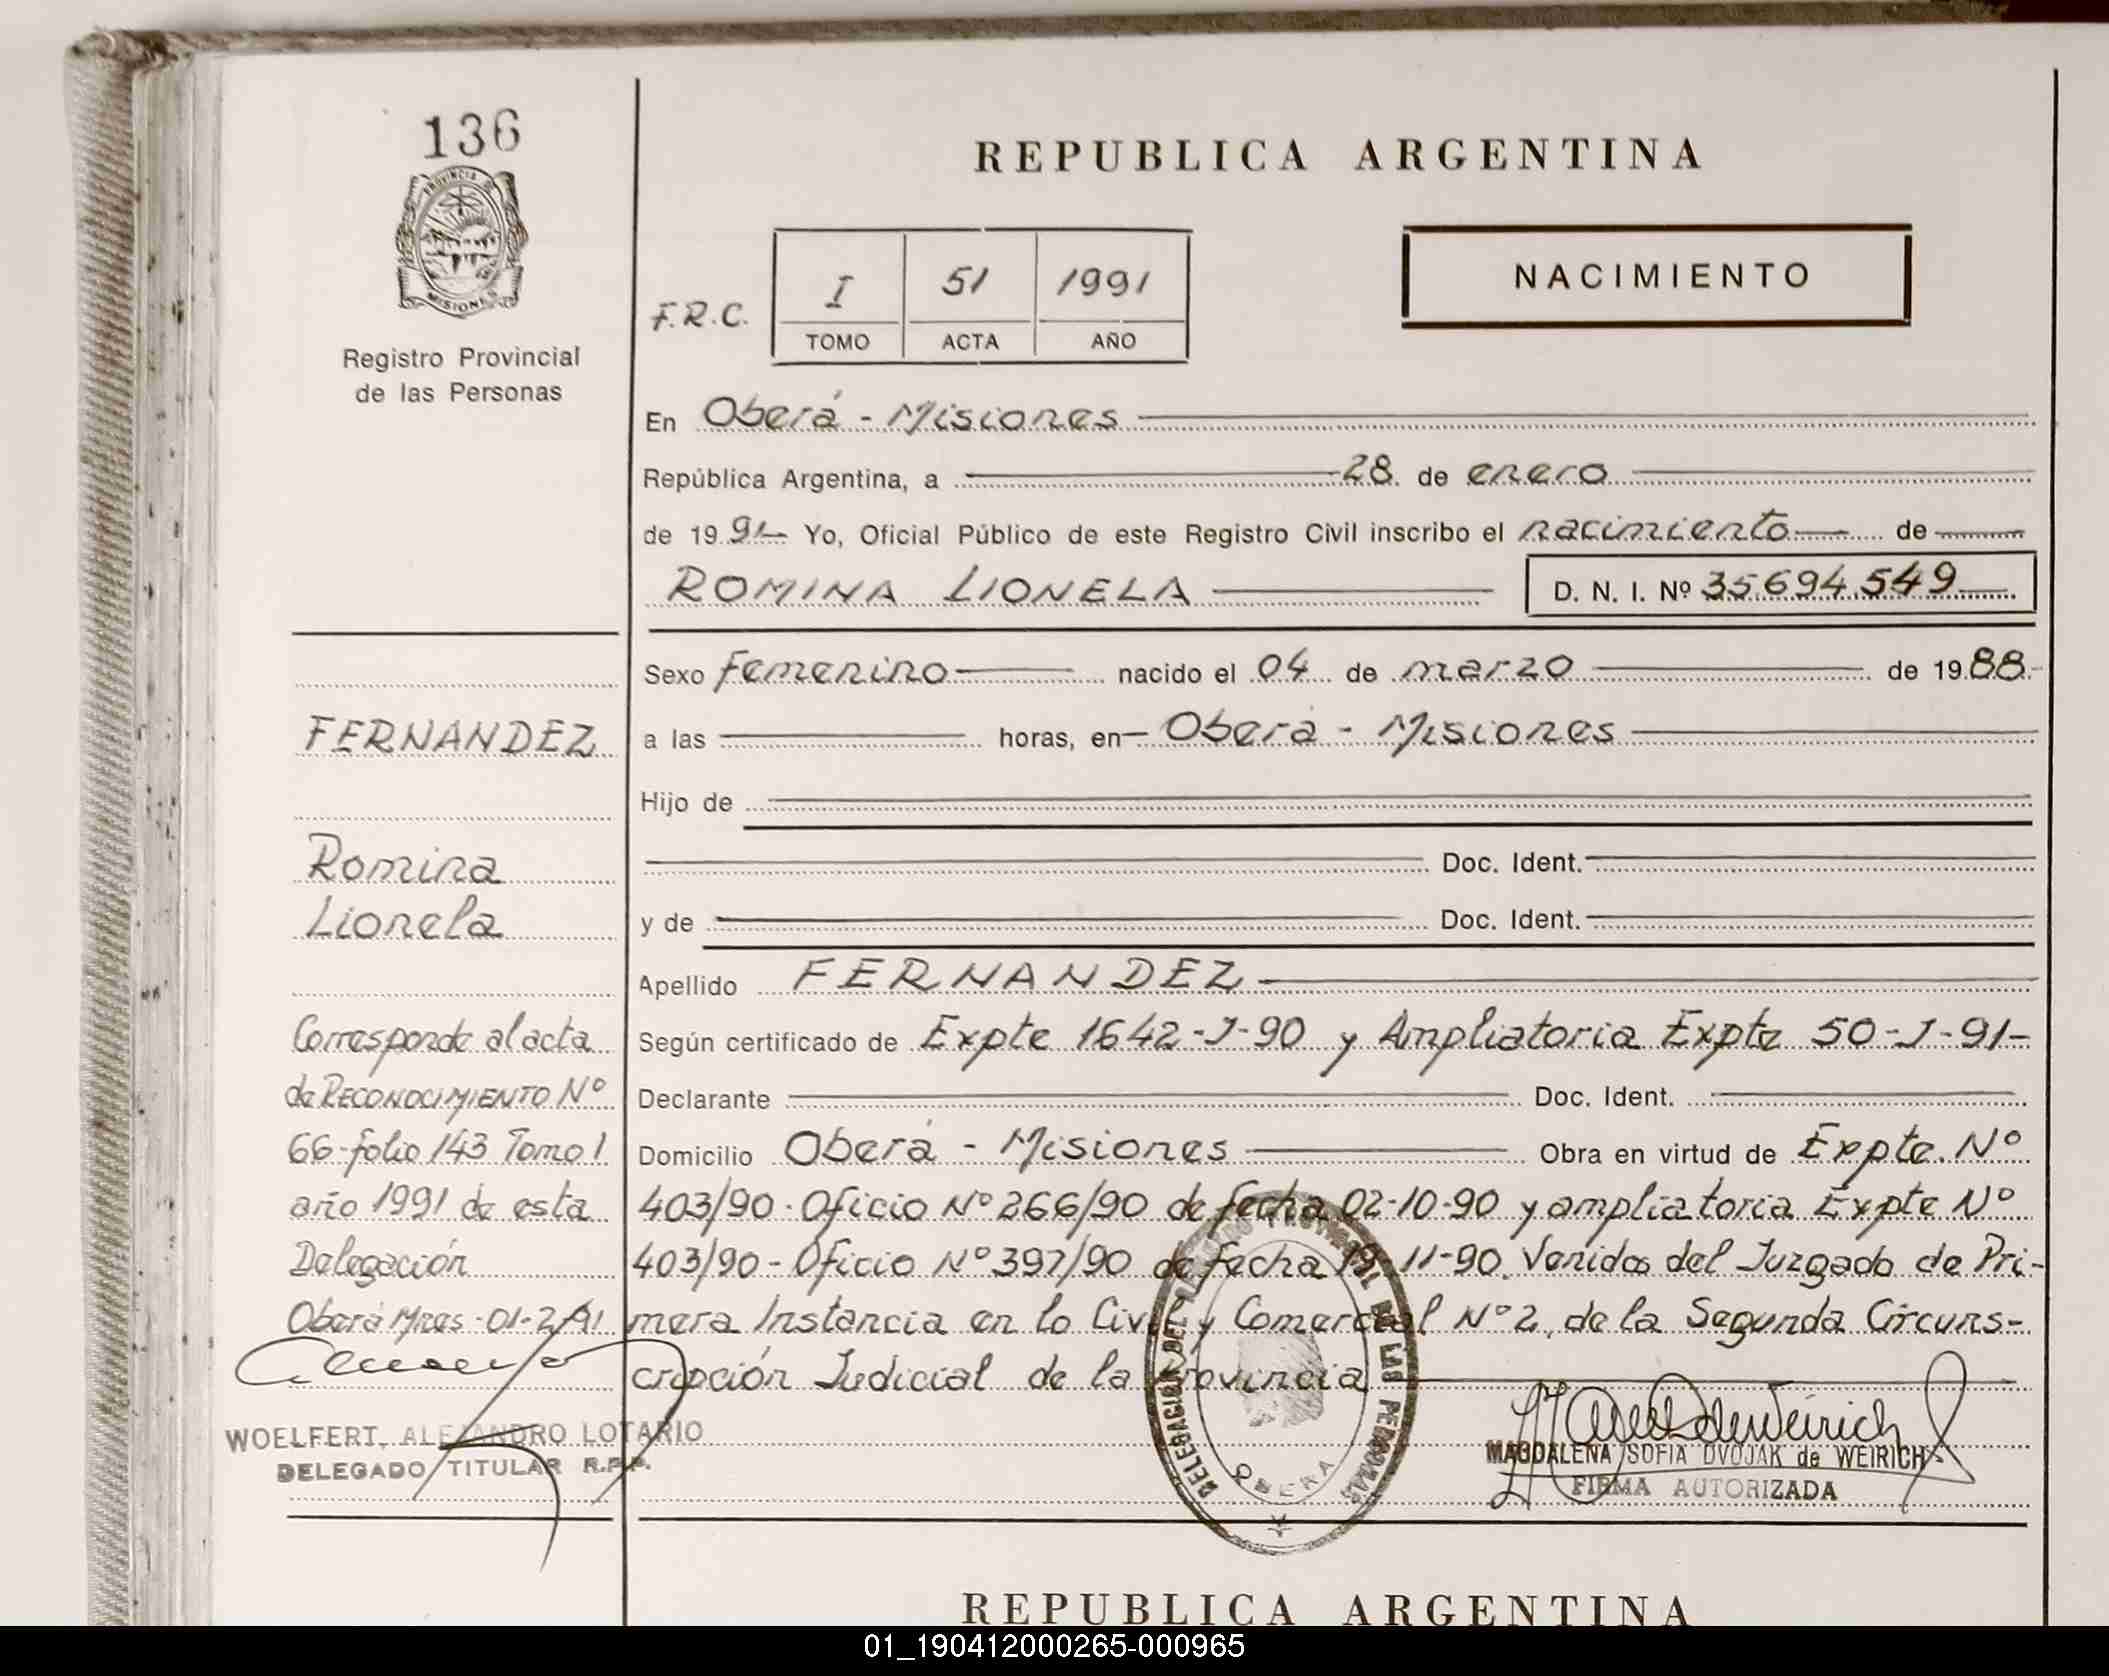 136
PROVINCIA DE
MISIONES
Registro Provincial
de las Personas
REPUBLICA ARGENTINA
F.R.C.
I 51 1991
TOMO ACTA AÑO
NACIMIENTO
En Oberá - Misiones
República Argentina, a 28 de enero
de 1991 Yo, Oficial Público de este Registro Civil inscribo el nacimiento de
ROMINA LIONELA D. N. I. Nº 35.694.549
Sexo Femenino nacido el 04 de marzo de 1988.-
a las horas, en Oberá - Misiones
Hijo de
Doc. Ident.
y de Doc. Ident.
Apellido FERNANDEZ
Según certificado de Expte 1642-J-90 y Ampliatoria Expte 50-J-91-
Declarante Doc. Ident.
Domicilio Oberá - Misiones Obra en virtud de Expte. Nº
403/90. Oficio Nº 266/90 de fecha 02-10-90 y ampliatoria Expte Nº
403/90 - Oficio Nº 397/90 de fecha 19-11-90. Venidos del Juzgado de Pri-
mera Instancia en lo Civil y Comercial Nº 2, de la Segunda Circuns-
cripción Judicial de la Provincia
FERNANDEZ
Romina
Lionela
Corresponde al acta
de RECONOCIMIENTO Nº
66-folio 143 Tomo I
año 1991 de esta
Delegación
Oberá Mnes-01-2-91
WOELFERT, ALEJANDRO LOTARIO
DELEGADO TITULAR R.P.P.
DELEGACION DEL REGISTRO PROVINCIAL DE LAS PERSONAS
OBERA
MAGDALENA SOFIA DVOJAK de WEIRICH
FIRMA AUTORIZADA
REPUBLICA ARGENTINA
01_190412000265-000965